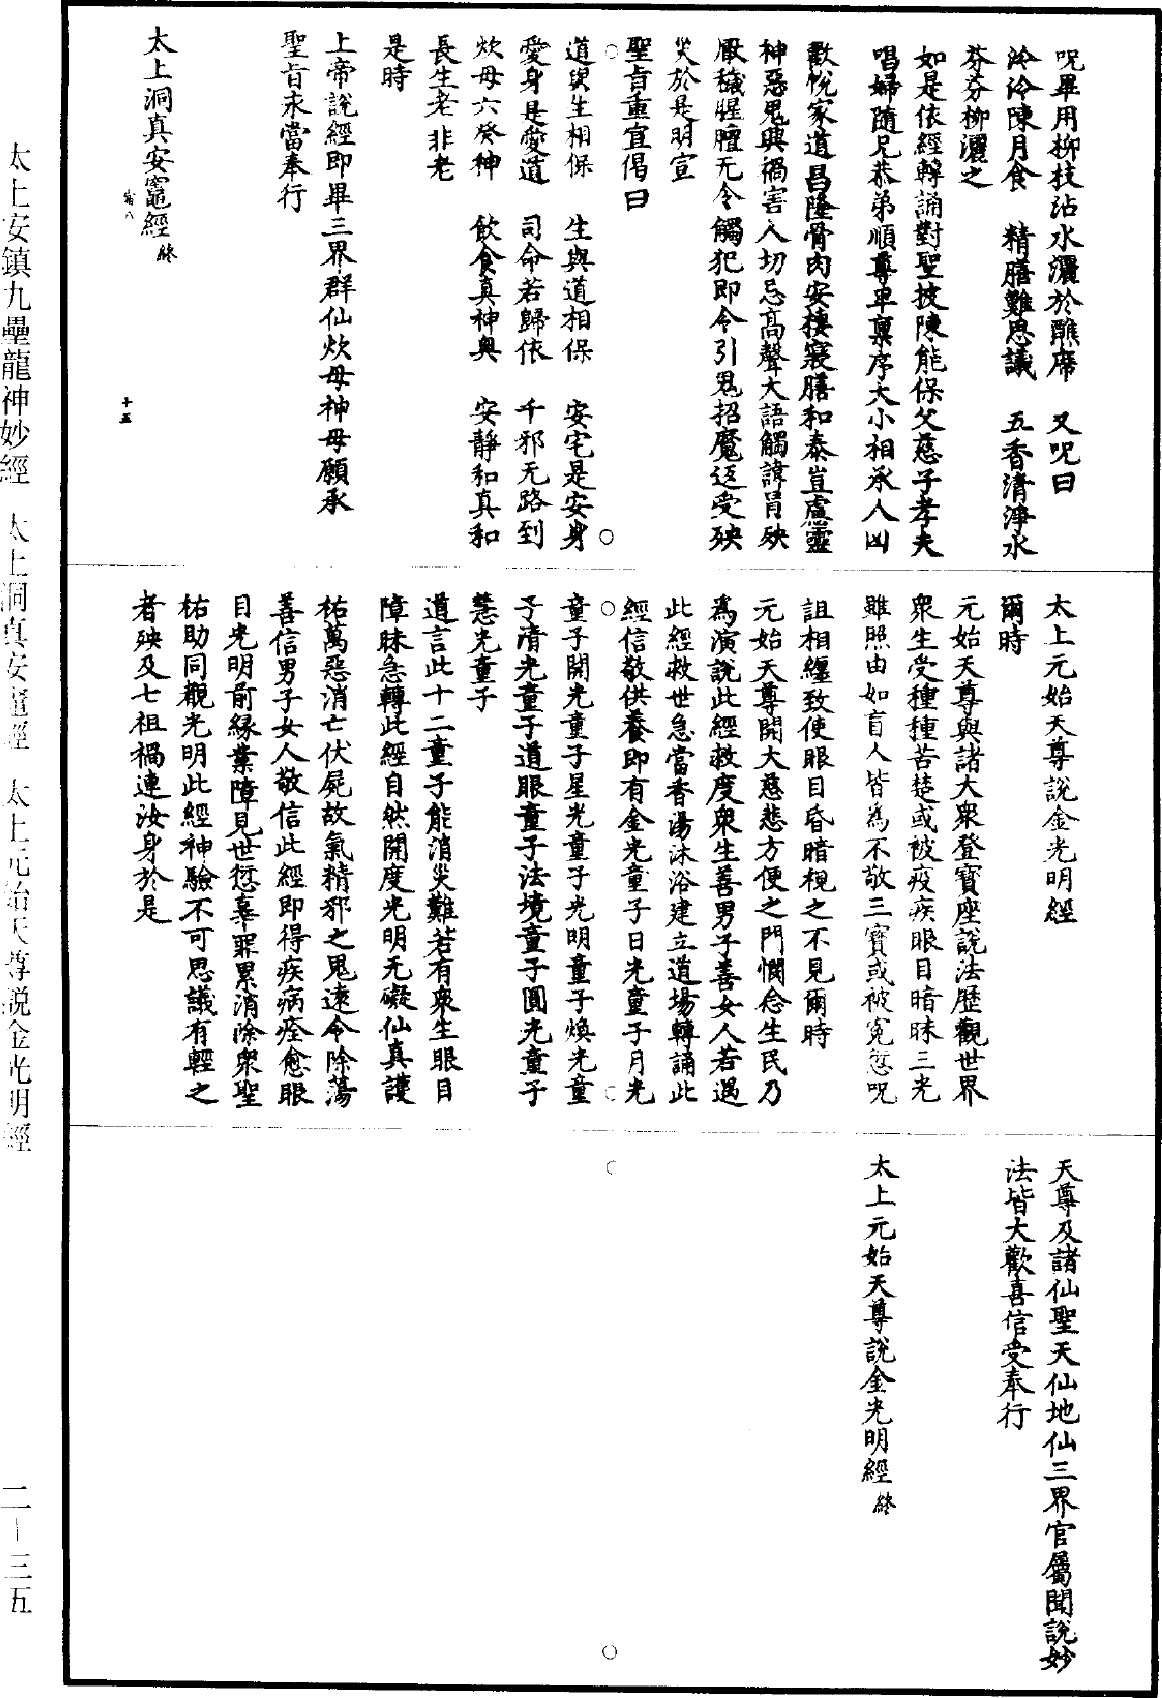 呪畢用柳枝沾水灑於醮席　又呪曰
泠泠陳月食　精膳難思議　五香清淨水
芬芬柳灑之
如是依經轉誦對聖披陳能保父慈子孝夫
唱婦隨兄恭弟順尊卑稟序大小相承人凶
歡悅家道昌隆骨肉安棲寢膳和泰豈慮靈
神惡鬼興禍害人切忌高聲大語觸諱冐殃
厭穢腥膻无令觸犯即令引鬼招魔返受殃
災於是明宣
聖旨重宣偈曰
道與生相保　生與道相保　安宅是安身
愛身是愛道　司命若歸依　千邪无路到
炊母六癸神　飲食真神輿　安靜和真和
長生老非老
是時
上帝說經即畢三界群仙炊母神母願承
聖旨永當奉行
太上洞真安竈經終
十五
太上元始天尊說金光明經
爾時
元始天尊與諸大衆登寶座說法歷觀世界
衆生受種種苦楚或被疫疾眼目暗昧三光
雖照由如盲人皆為不敬三寶或被冤愆呪
詛相纏致使眼目昏暗視之不見爾時
元始天尊開大慈悲方便之門憫念生民乃
為演說此經救度衆生善男子善女人若遇
此經救世急當香湯沐浴建立道場轉誦此
經信敬供養即有金光童子日光童子月光
童子開光童子星光童子光明童子煥光童
子清光童子道眼童子法境童子圓光童子
慧光童子
道言此十二童子能消災難若有衆生眼目
障昧急轉此經自然開度光明无礙仙真護
祐萬惡消亡伏屍故氣精邪之鬼速令除蕩
善信男子女人敬信此經即得疾病痊愈眼
目光明前緣業障見世愆辜罪累消除衆聖
祐助同觀光明此經神驗不可思議有輕之
者殃及七祖禍連汝身於是
天尊及諸仙聖天仙地仙三界官屬聞說妙
法皆大歡喜信受奉行
太上元始天尊說金光明經終
太上安鎮九壘龍神妙經　太上洞真安竈經　太上元始天尊說金光明經
二—三五